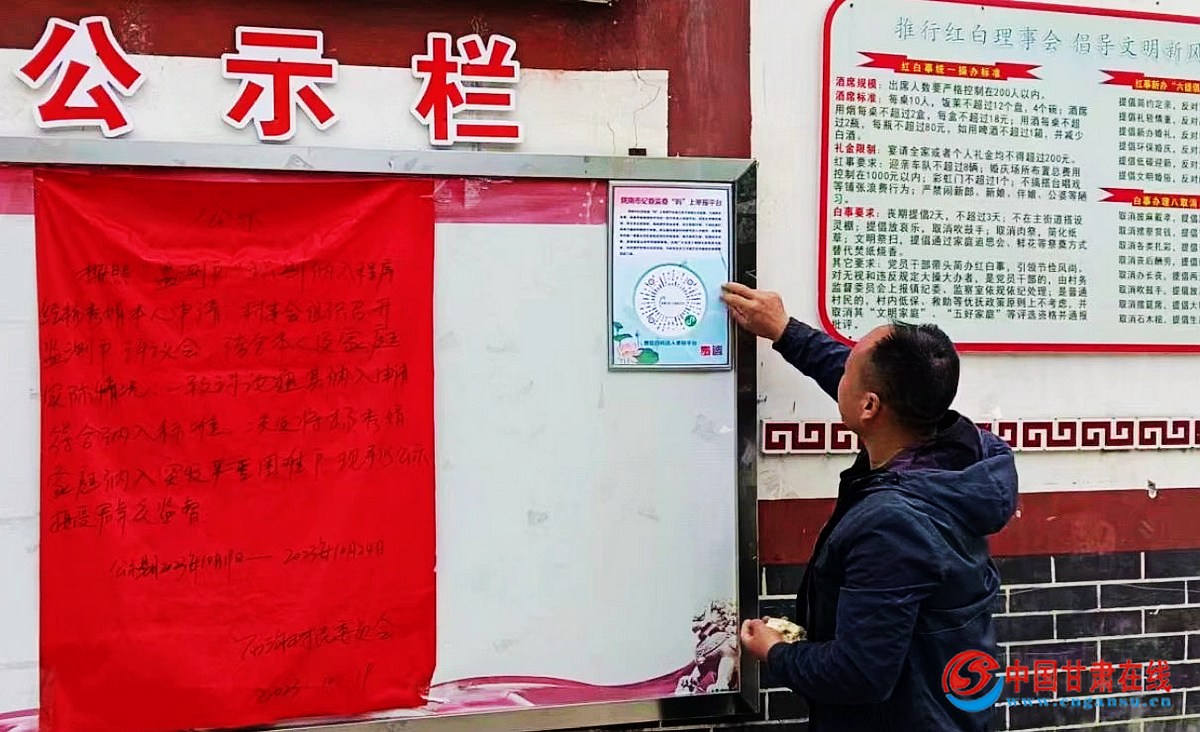 公示栏
公示
根据"监测户"识别纳入程序
经杨秀娟本人申请 村委会组织召开
监测户评议会 结合本人及家庭
实际情况 一致讨论通过其纳入申请
符合纳入标准 决定将杨秀娟
家庭纳入突发严重困难户 现予以公示
接受群众监督
公示期2023年10月19日—2023年10月24日
村民委员会
2023.10.19
陇南市纪委监委"码"上举报平台
微信扫码进入举报平台
推行红白理事会 倡导文明新风
红白事统一操办标准
酒席规模：出席人数要严格控制在200人以内。
酒席标准：每桌10人，饭菜不超过12个盘，4个碗；酒席
用烟每桌不超过2盒，每盒不超过18元；用酒每桌不超
过2瓶，每瓶不超过80元，如用啤酒不超过1箱，并减少
白酒。
礼金限制：宴请全家或者个人礼金均不得超过200元。
红事要求：迎亲车队不超过8辆；婚庆场所布置总费用
控制在1000元以内；彩虹门不超过1个；不搞搭台唱戏
等铺张浪费行为；严禁闹新郎、新娘、伴娘、公婆等陋
习。
白事要求：丧期提倡2天，不超过3天；不在主街道搭设
灵棚；提倡放哀乐，取消吹鼓手；取消肉祭，简化纸
草；文明祭扫，提倡通过家庭追思会、鲜花等祭奠方式
替代焚纸烧香。
其它要求：党员干部带头简办红白事，引领节俭风尚。
对无视和违反规定大操大办者，是党员干部的，由村务
监督委员会上报镇纪委、监察室依规依纪处理；是普通
村民的，村内低保、救助等优抚政策原则上不考虑，并
取消其"文明家庭"、"五好家庭"等评选资格并通报
批评。
红事新办"六提倡
提倡简约定亲，反对
提倡礼轻情重，反对
提倡新办婚礼，反对
提倡环保婚庆，反对
提倡低碳迎新，反对
提倡文明婚俗，反对
白事办理八取消
取消披麻戴孝，提倡
取消摆祭赏钱，提倡
取消各类扎彩，提倡
取消丧后酬劳，提倡
取消办长丧，提倡
取消吹鼓手，提倡放
取消摆筵席，提倡
取消石木棺，提倡生
中国甘肃在线
www.cngansu.cn